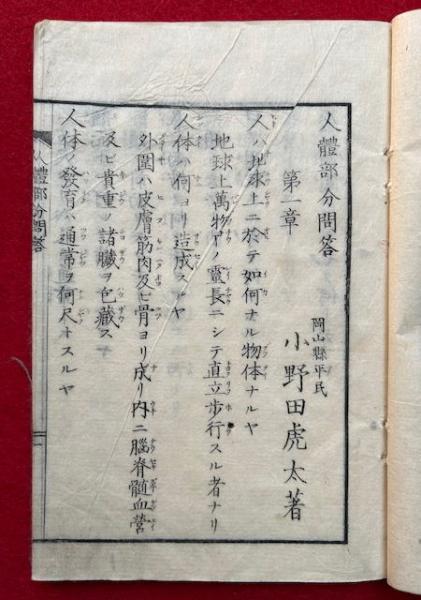 人體部分問答
第一章
岡山縣平民
小野田虎太著
人ハ地球上ニ於テ如何ナル物体ナルヤ
地球上萬物中ノ靈長ニシテ直立歩行スル者ナリ
人体ハ何ヨリ造成スルヤ
外圍ハ皮膚筋肉及ヒ骨ヨリ成リ内ニ腦脊髓血營
及ビ貴重ノ諸臟ヲ包藏ス
人体ノ發育ハ通常ヲ何尺オスルヤ
人體部分問答